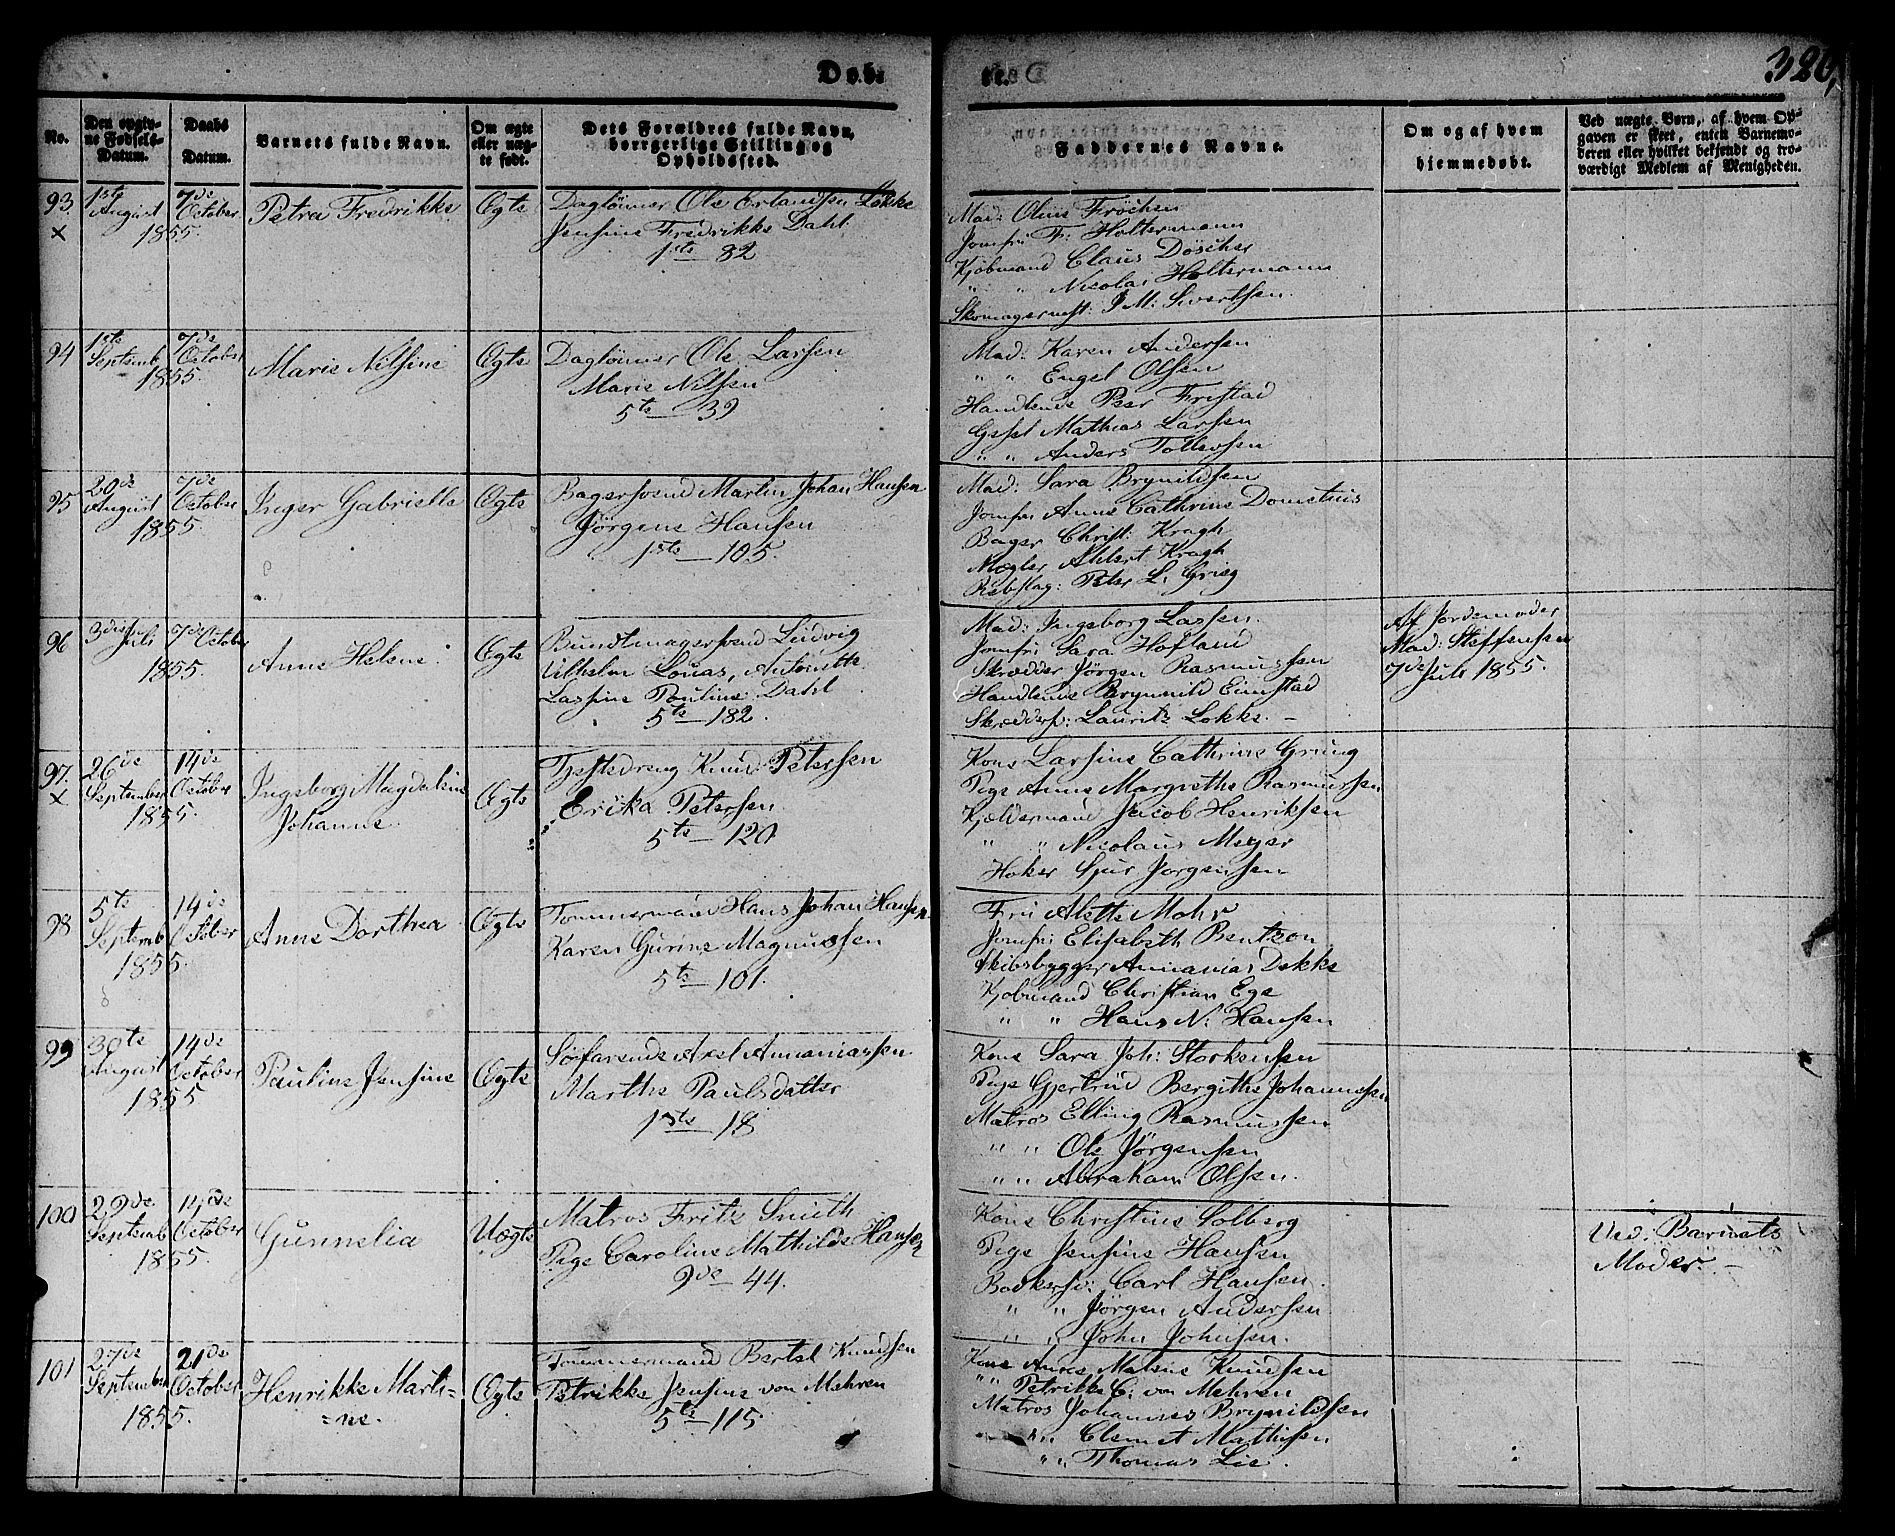 Døb-
te.
320,
No.
Den opgiv-
ne Fødsels-
Datum.
Daabs
Datum.
Barnets fulde Navn.
Om ægte
eller uæg-
te født.
Dets Forældres fulde Navn,
borgerlige Stilling og
Opholdssted.
Faddernes Navne.
Om og af hvem
hjemmedøbt.
Ved uægte Børn, af hvem Op-
gaven er skeet, enten Barnemo-
deren eller hvilket bekjendt og tro-
værdigt Medlem af Menigheden.
93
x
1ste
August
1855.
7de
October
Petra Fredrikke
Ægte
Daglönner Ole Erlandsen Løkke
Jensine Fredrikke Dahl
1ste 82
Mad: Oline Fröchen
Jomfr: F: Holtermann
Kjöbmand Claus Döscher
" " Nicolai Holtermann
Skomagermst: J M: Sivertsen.
94
1ste
Septemb
1855.
7de
October
Marie Nilsine
Ægte
Daglönner Ole Larsen
Marie Nilsen
5te 39
Mad: Karen Andersen
" " Engel Olsen
Handlende Peer Frestad
Gesel Mathias Larsen
" " Anders Tollevsen
95
20de
August
1855.
7de
October
Inger Gabrielle
Ægte
Bagersvend Martin Johan Hansen
Jörgine Hansen
1ste 105.
Mad: Sara Brynildsen
Jomfr: Anne Cathrine Dometius
Bager Christ: Kragh
Mægler Ahlert Kragh
Rebslag: Peter L. Grieg
96
3die
Juli
1855.
7de October
Anne Helene
Ægte
Bundtmagersvend Ludvig
Vilhelm Louas, Antonette
Lassine Pauline Dahl
5te 182.
Mad: Ingeborg Lassen.
Jomfr: Sara Hofland
Skrædder Jörgen Rasmussen
Handlende Brynnild Eimstad
Skræddersv: Lauritz Løkke.
Af Jordemoder
Mad: Steffensen
7de Juli 1855.
97.
x
26de
September
1855.
14de
October
Ingeborg Magdalene
Johanne
Ægte
Tjestedreng Knud Petersen
Erika Petersen
5te 120
Kone Larsine Cathrine Grung
Pige Anne Margrethe Rasmussen
Kjeldermand Jacob Henriksen
" " Nicolaus Meyer
Høker Sjur Jørgensen
98
5te
Septemb
1855.
14de
October
Anne Dorthea
Ægte
Tømmermand Hans Johan Hansen
Karen Gurine Magnussen
5te 101.
Fru Alette Mohr
Jomfr: Elisabeth Bentzon
Skibsbygger Annanias Dekke
Kjøbmand Christian Ege
" " Hans N: Hansen
99
30te
August
1855
14de
October
Pauline Jensine
Ægte
Söfarende Axel Annaniassen
Marthe Paulsdatter
1ste 18
Kone Sara Joh: Storkensen
Pige Gjertrud Bergithe Johannessen
Matros Elling Rasmussen
" " Ole Jörgensen
" " Abraham Olsen.
100
29de
Septemb
1855.
14de
October
Gunnelia
Uægte
Matros Fritz Smith
Pige Caroline Mathilde Hansen
9de 44.
Kone Christine Solberg
Pige Jensine Hansen
Bødkersv: Carl Hansen.
" " Jörgen Andersen
" " John Johnsen.
Ved Barnets
Moder.
101
27de
September
1855.
21de
October
Henrikke Marti-
-ne.
Ægte
Tømmermand Bertel Knudsen
Petrikke Jensine von Mehren
5te 115
Kone Anne Malene Knudsen
" " Petrikke C: von Mehren
Matros Johannes Brynildsen
" Clemet Mathisen
" " Thomas Lie.